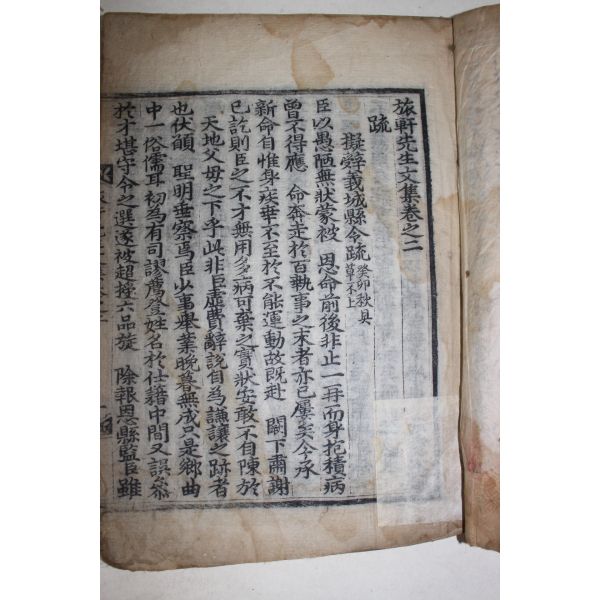 旅軒先生文集卷之二
疏
擬辭義城縣令疏 癸卯秋具草不上
臣以愚陋無狀蒙被 恩命前後非止一再而身抱積病
曾不得應 命奔走於百執事之末者亦已屢矣今承
新命自惟身疾幸不至於不能運動故既赴 闕下肅謝
已訖則臣之不才無用多病可棄之實狀安敢不自陳於
天地父母之下乎此非臣虛費辭說自爲謙讓之跡者
也伏願 聖明垂察焉臣少事舉業晚暮無成只是鄕曲
中一俗儒耳初爲有司謬薦登姓名於仕籍中間又誤叅
於才堪守令之選遂被超擢六品旋 除報恩縣監臣雖